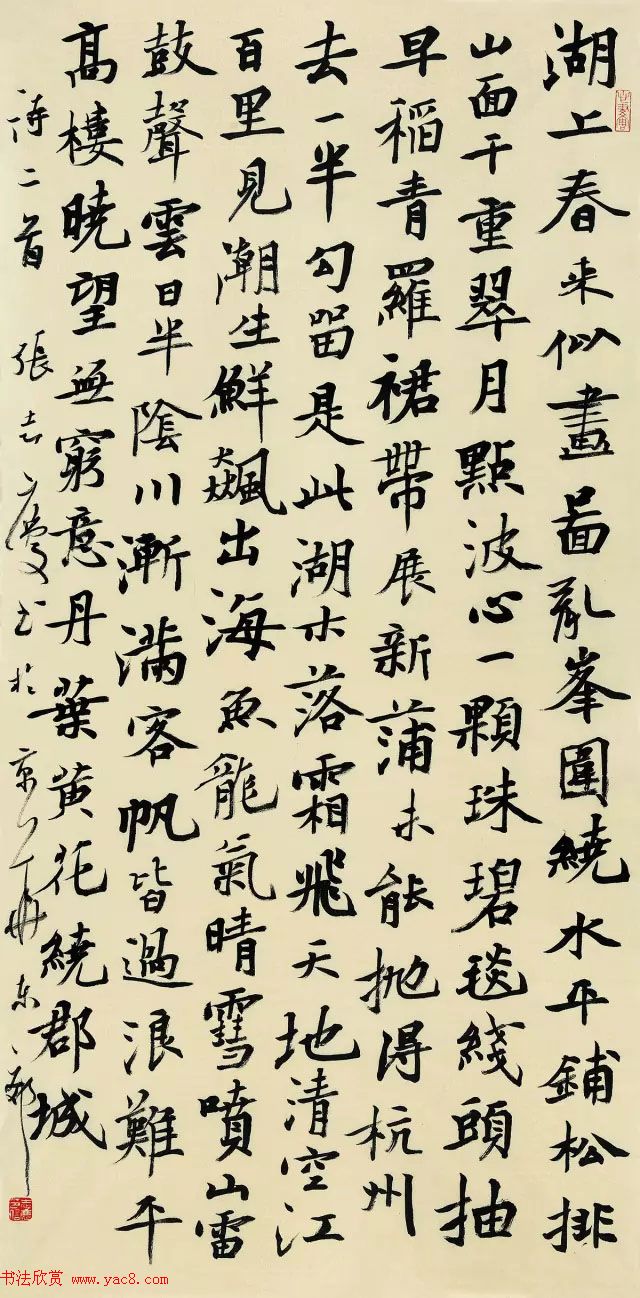 湖上春来似畫啚亂峯圍繞水平鋪松排
山面千重翠月點波心一顆珠碧毯綫頭抽
早稻青羅裙帶展新蒲未能抛得杭州
去一半勾留是此湖木落霜飛天地清空江
百里見潮生鮮飆出海魚龍氣晴雪噴山雷
鼓聲雲日半陰川漸滿客帆皆過浪難平
高樓曉望無窮意丹葉黄花繞郡城
詩二首 張志慶书於京东郊
书法欣赏 www.yac8.com